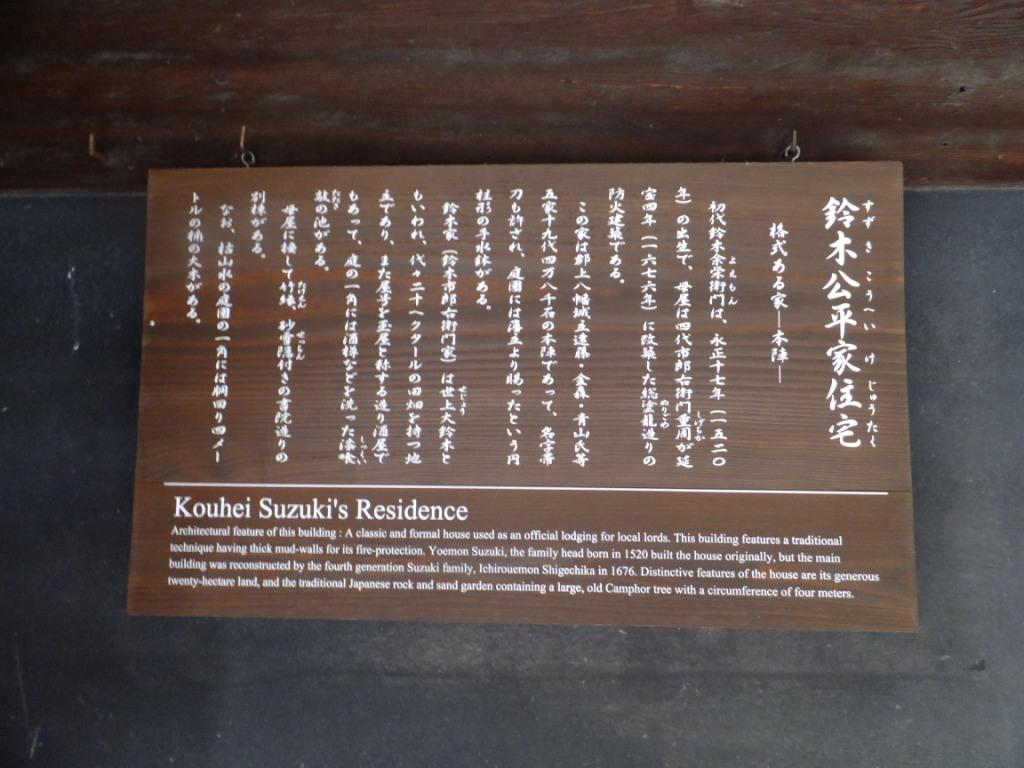 鈴木公平家住宅
すずきこうへいけじゅうたく
格式ある家―本陣―
初代鈴木余営衛門は、永正十七年(一五二〇
よえもん
年)の出生で、母屋は四代市郎右衛門重周が延
しげちか
宝四年(一六七六年)に改築した総塗籠造りの
ぬりごめ
防火建築である。
この家は郡上八幡城主遠藤・金森・青山氏等
五家十九代四万八千石の本陣であって、名字帯
刀も許され、庭園には藩主より賜ったという円
柱形の手水鉢がある。
鈴木家(鈴木市郎右衛門家)は世上大鈴木と
せじょう
もいわれ、代々二十ヘクタールの田畑を持つ地
主であり、また屋号を玉屋と称する造り酒屋で
もあって、庭の一角には酒樽などを洗った漆喰
しっくい
敲の池がある。
たたき
母屋に接して竹縁、砂雪隠付きの書院造りの
たけえん
せっちん
別棟がある。
なお、枯山水の庭園の一角には胴回り四メー
トルの楠の大木がある。
Kouhei Suzuki's Residence
Architectural feature of this building : A classic and formal house used as an official lodging for local lords. This building features a traditional
technique having thick mud-walls for its fire-protection. Yoemon Suzuki, the family head born in 1520 built the house originally, but the main
building was reconstructed by the fourth generation Suzuki family, Ichirouemon Shigechika in 1676. Distinctive features of the house are its generous
twenty-hectare land, and the traditional Japanese rock and sand garden containing a large, old Camphor tree with a circumference of four meters.